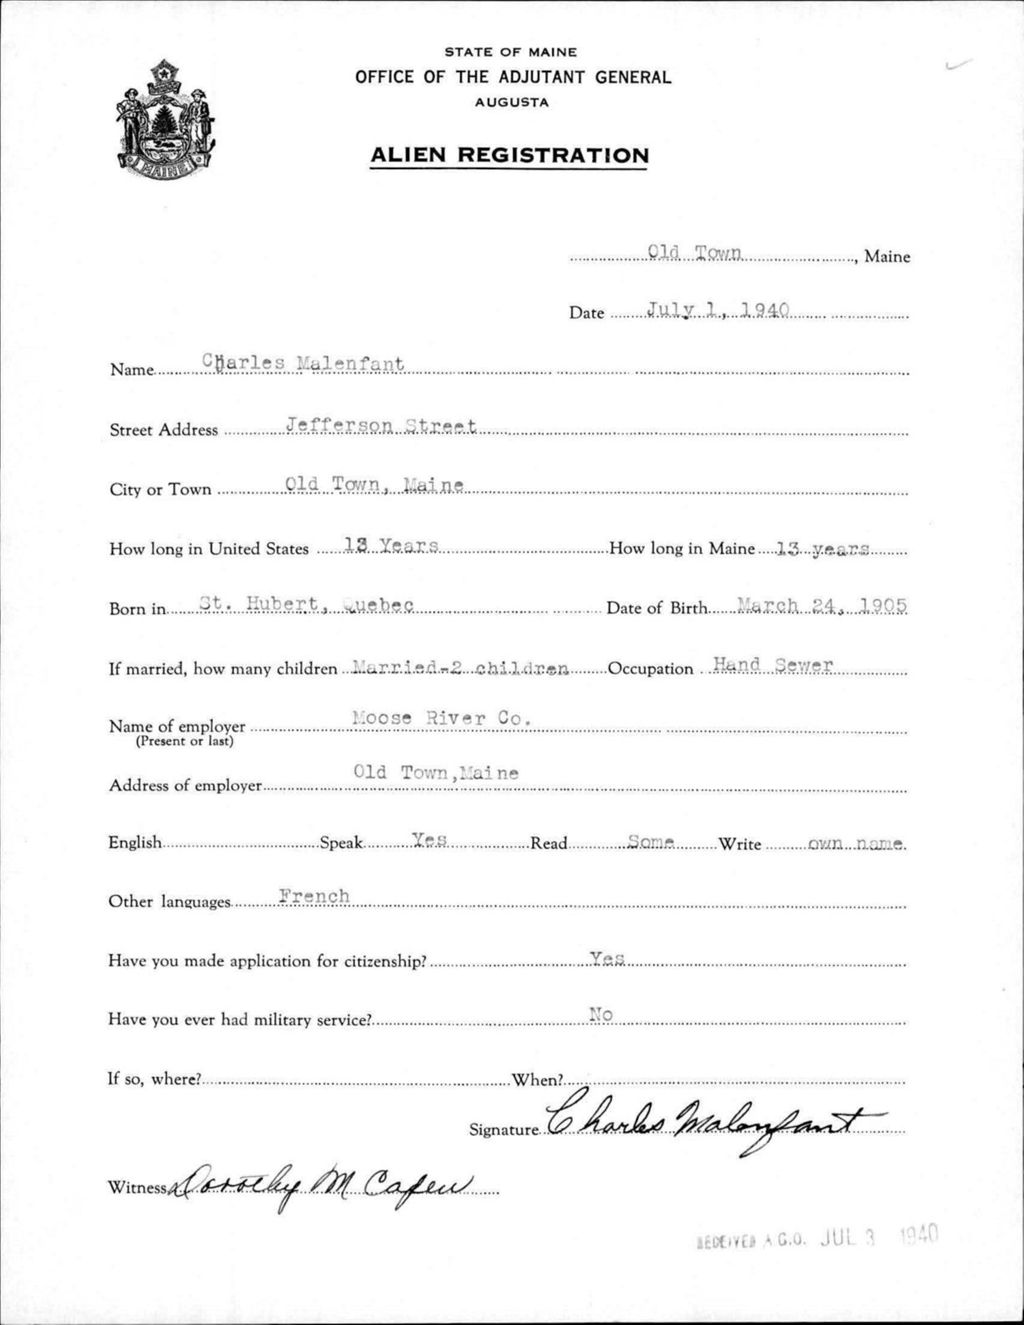 STATE OF MAINE
OFFICE OF THE ADJUTANT GENERAL
AUGUSTA
ALIEN REGISTRATION
MAINE
Old Town, Maine
Date July 1, 1940
Name Charles Malenfant
Street Address Jefferson Street
City or Town Old Town, Maine
How long in United States 13 Years How long in Maine 13 years
Born in St. Hubert, Quebec Date of Birth March 24, 1905
If married, how many children Married-2 children Occupation Hand Sewer
Name of employer Moose River Co.
(Present or last)
Address of employer Old Town, Maine
English Speak Yes Read Some Write own name.
Other languages French
Have you made application for citizenship? Yes
Have you ever had military service? No
If so, where? When?
Signature Charles Malenfant
Witness Dorothy M Capen
RECEIVED A.G.O. JUL 3 1940